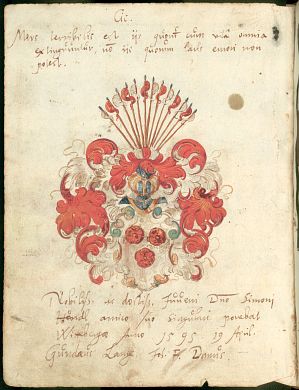 Cic.
Mors terribilis est ijs quorum cum vita omnia
extinguuntur, non ijs quorum laus emori non
potest.
Nobiliss. ac doctiss. Juveni Dno Simoni
amico suo singulari ponebat
Witebergæ Anno 1595 19 April.
Lange, Danus.